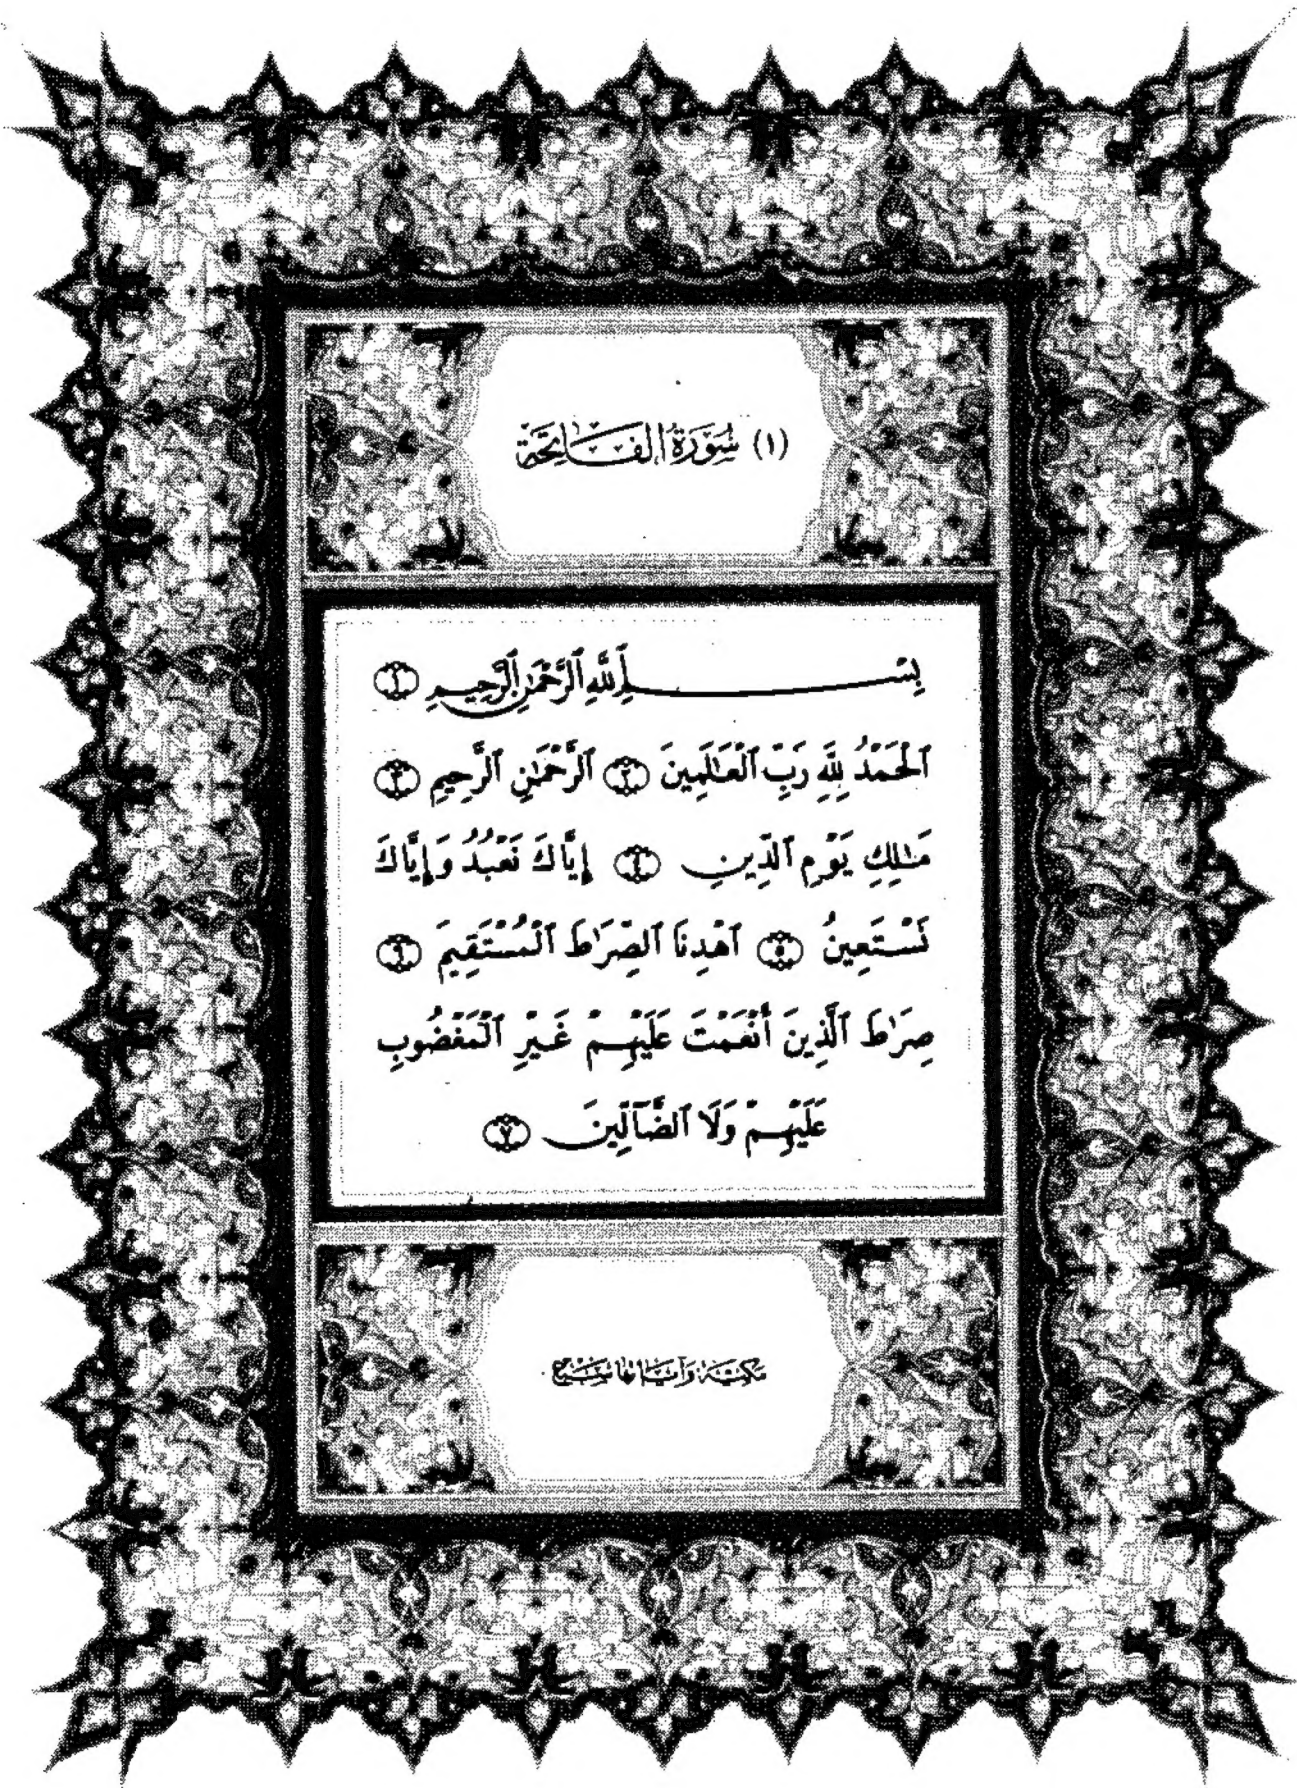 (١) سُورَةُ الفَاتِحَة
بِسْمِ ٱللَّهِ ٱلرَّحْمَٰنِ ٱلرَّحِيمِ ١
ٱلْحَمْدُ لِلَّهِ رَبِّ ٱلْعَٰلَمِينَ ٢ ٱلرَّحْمَٰنِ ٱلرَّحِيمِ ٣
مَٰلِكِ يَوْمِ ٱلدِّينِ ٤ إِيَّاكَ نَعْبُدُ وَإِيَّاكَ
نَسْتَعِينُ ٥ ٱهْدِنَا ٱلصِّرَٰطَ ٱلْمُسْتَقِيمَ ٦
صِرَٰطَ ٱلَّذِينَ أَنْعَمْتَ عَلَيْهِمْ غَيْرِ ٱلْمَغْضُوبِ
عَلَيْهِمْ وَلَا ٱلضَّآلِّينَ ٧
مكية وآياتها سبع